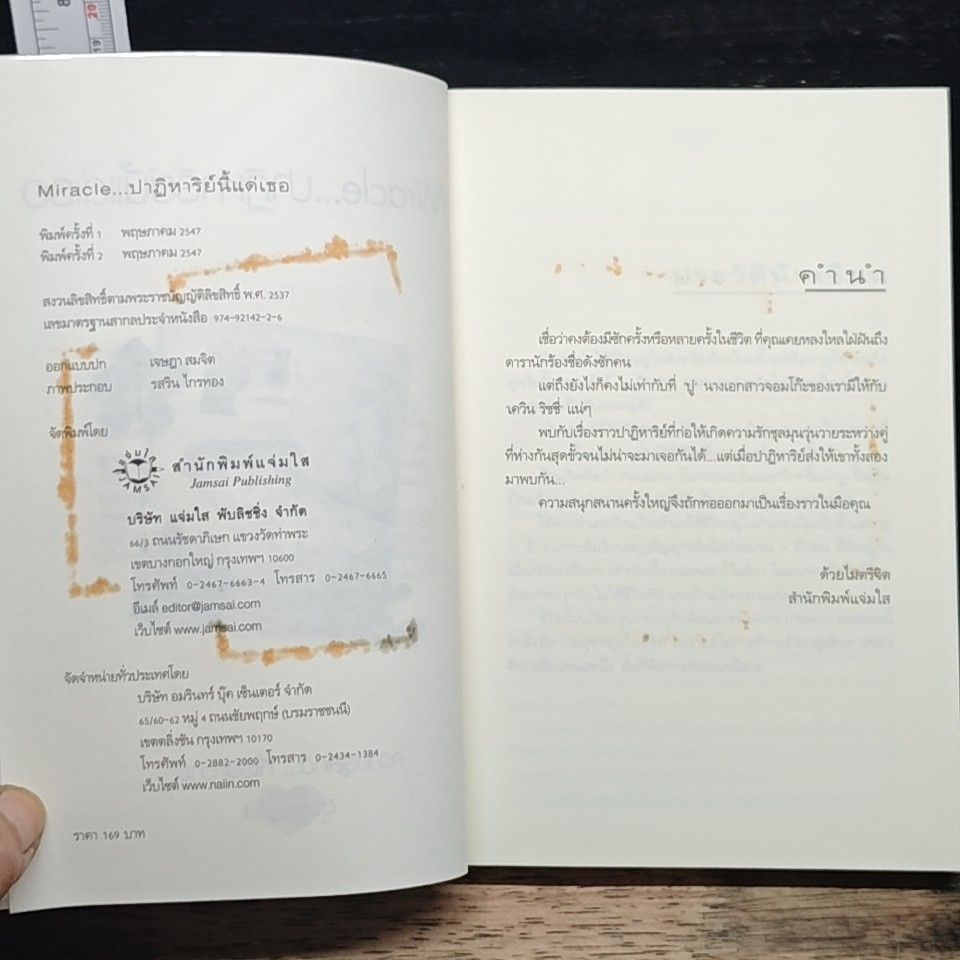 8
20
19
Miracle...ปาฏิหาริย์นี้แด่เธอ
พิมพ์ครั้งที่ 1 พฤษภาคม 2547
พิมพ์ครั้งที่ 2 พฤษภาคม 2547
สงวนลิขสิทธิ์ตามพระราชบัญญัติลิขสิทธิ์ พ.ศ. 2537
เลขมาตรฐานสากลประจำหนังสือ 974-92142-2-6
ออกแบบปก เจษฎา สมจิต
ภาพประกอบ รสริน ไกรทอง
จัดพิมพ์โดย
แจ่มใส
JAMSAI
สำนักพิมพ์แจ่มใส
Jamsai Publishing
บริษัท แจ่มใส พับลิชชิ่ง จำกัด
66/3 ถนนรัชดาภิเษก แขวงวัดท่าพระ
เขตบางกอกใหญ่ กรุงเทพฯ 10600
โทรศัพท์ 0-2467-6663-4 โทรสาร 0-2467-6665
อีเมล์ editor@jamsai.com
เว็บไซต์ www.jamsai.com
จัดจำหน่ายทั่วประเทศโดย
บริษัท อมรินทร์ บุ๊ค เซ็นเตอร์ จำกัด
65/60-62 หมู่ 4 ถนนชัยพฤกษ์ (บรมราชชนนี)
เขตตลิ่งชัน กรุงเทพฯ 10170
โทรศัพท์ 0-2882-2000 โทรสาร 0-2434-1384
เว็บไซต์ www.naiin.com
ราคา 169 บาท
คำนำ
เชื่อว่าคงต้องมีซักครั้งหรือหลายครั้งในชีวิต ที่คุณเคยหลงใหลใฝ่ฝันถึง
ดารานักร้องชื่อดังซักคน
แต่ถึงยังไงก็คงไม่เท่ากับที่ 'ปู' นางเอกสาวจอมโก๊ะของเรามีให้กับ
'เควิน ริชชี่' แน่ๆ
พบกับเรื่องราวปาฏิหาริย์ที่ก่อให้เกิดความรักชุลมุนวุ่นวายระหว่างคู่
ที่ห่างกันสุดขั้วจนไม่น่าจะมาเจอกันได้...แต่เมื่อปาฏิหาริย์ส่งให้เขาทั้งสอง
มาพบกัน...
ความสนุกสนานครั้งใหญ่จึงถักทอออกมาเป็นเรื่องราวในมือคุณ
ด้วยไมตรีจิต
สำนักพิมพ์แจ่มใส